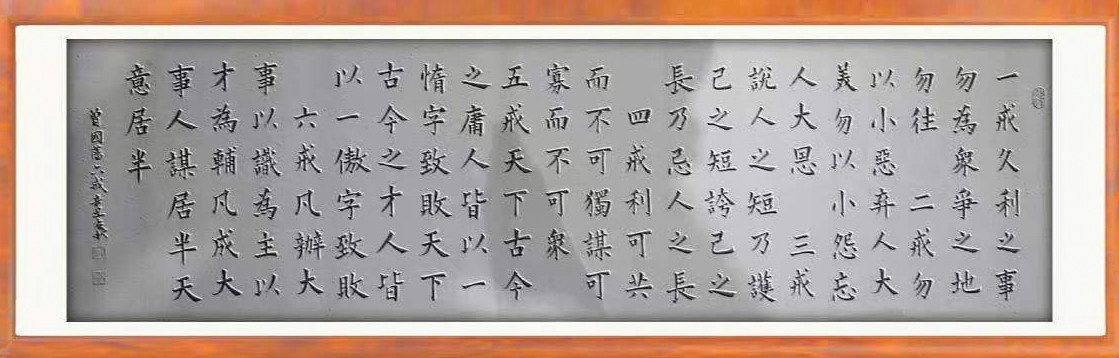 一戒久利之事
勿為衆爭之地
勿往 二戒勿
以小惡弃人大
美勿以小怨忘
人大恩 三戒
說人之短乃護
己之短誇己之
長乃忌人之長
四戒利可共
而不可獨謀可
寡而不可衆
五戒天下古今
之庸人皆以一
惰字致敗天下
古今之才人皆
以一傲字致敗
六戒凡辦大
事以識為主以
才為輔凡成大
事人謀居半天
意居半
曾國藩六戒辛丑